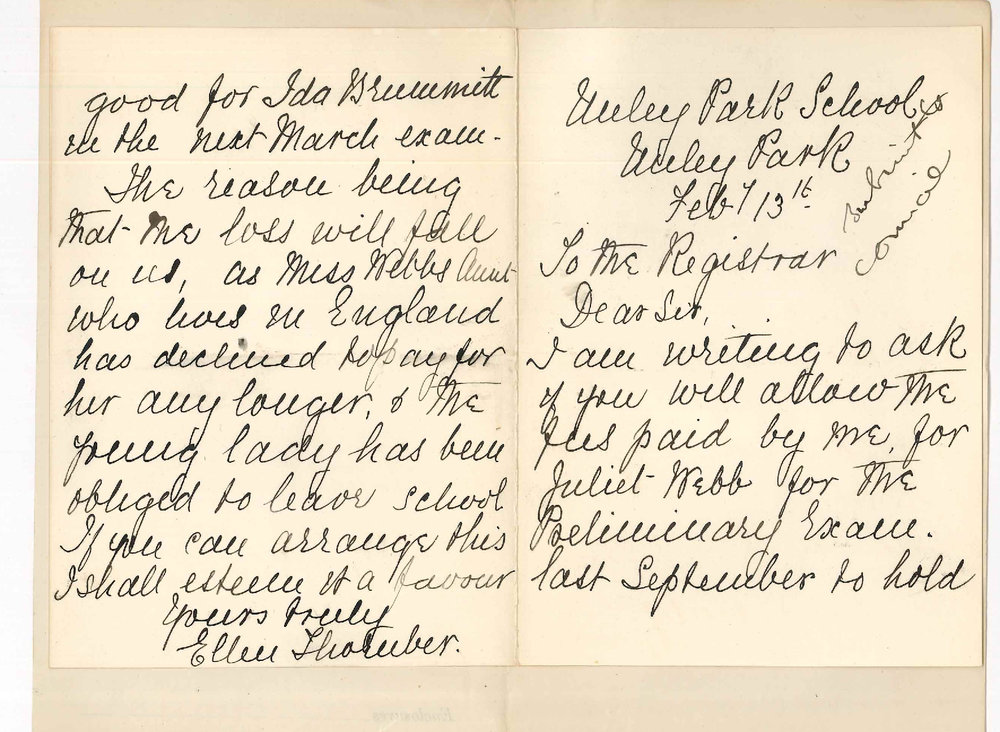 Unley Park School
Unley Park
Feby 13th
To the Registrar
Dear Sir,
I am writing to ask
if you will allow the
fees paid by me, for
Juliet Webb for the
Preliminary Exam.
last September to hold
good for Ida Brummitt
in the next March exam-
The reason being
that the loss will fall
on us, as Miss Webbs Aunt
who lives in England
has declined to pay for
her any longer, & the
young lady has been
obliged to leave school
If you can arrange this
I shall esteem it a favour
Yours truly
Ellen Thornber.
Enclosures